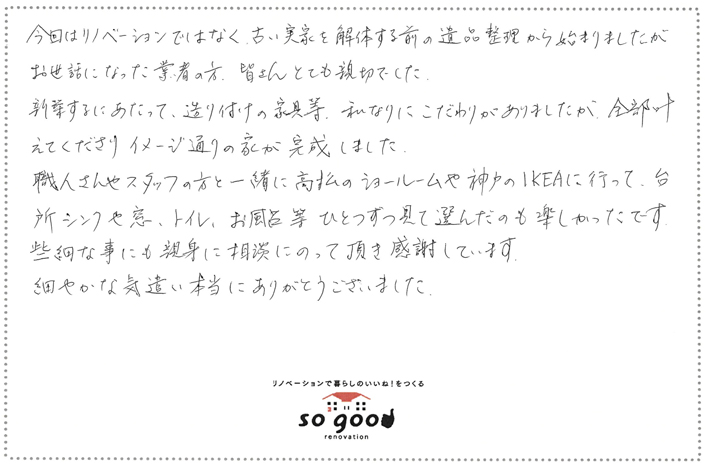 今回はリノベーションではなく、古い実家を解体する前の遺品整理から始まりましたが
お世話になった業者の方、皆さんとても親切でした。
新築するにあたって、造り付けの家具等、私なりにこだわりがありましたが、全部叶
えてくださりイメージ通りの家が完成しました。
職人さんやスタッフの方と一緒に高松のショールームや神戸のIKEAに行って、台
所シンクや窓、トイレ、お風呂等ひとつずつ見て選んだのも楽しかったです。
些細な事にも親身に相談にのって頂き感謝しています。
細やかな気遣い本当にありがとうございました。
リノベーションで暮らしのいいね!をつくる
so good
renovation